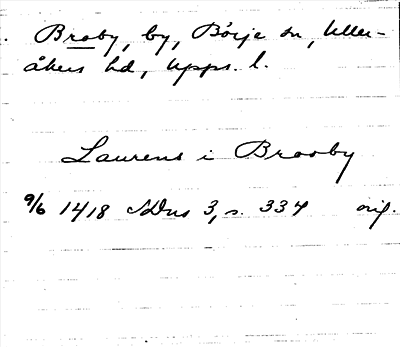 Broby, by, Börje sn, Uller-
åkers hd, Upps. l.
Laurens i Brooby
9/6 1418 SDns 3, s. 334 orig.